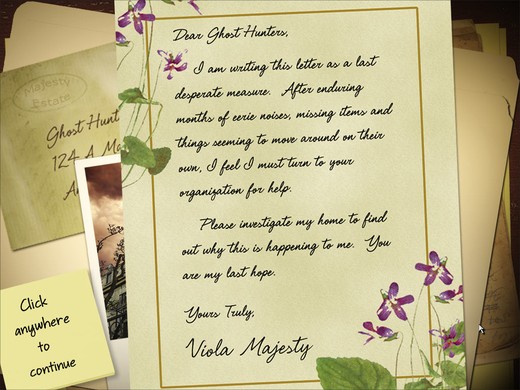 Majesty
Estate
Ghost Hunt
124 A Ma
Dear Ghost Hunters,
I am writing this letter as a last
desperate measure. After enduring
months of eerie noises, missing items and
things seeming to move around on their
own, I feel I must turn to your
organization for help.
Please investigate my home to find
out why this is happening to me. You
are my last hope.
Yours Truly,
Viola Majesty
Click
anywhere
to
continue